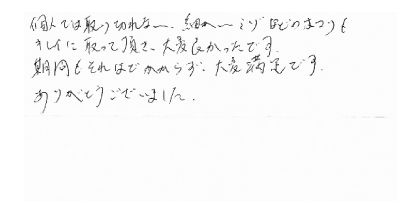 個人では取り切れない、細かいミゾなどのよごれも
キレイに取って頂き、大変良かったです。
期間もそれほどかからず、大変満足です。
ありがとうございました。